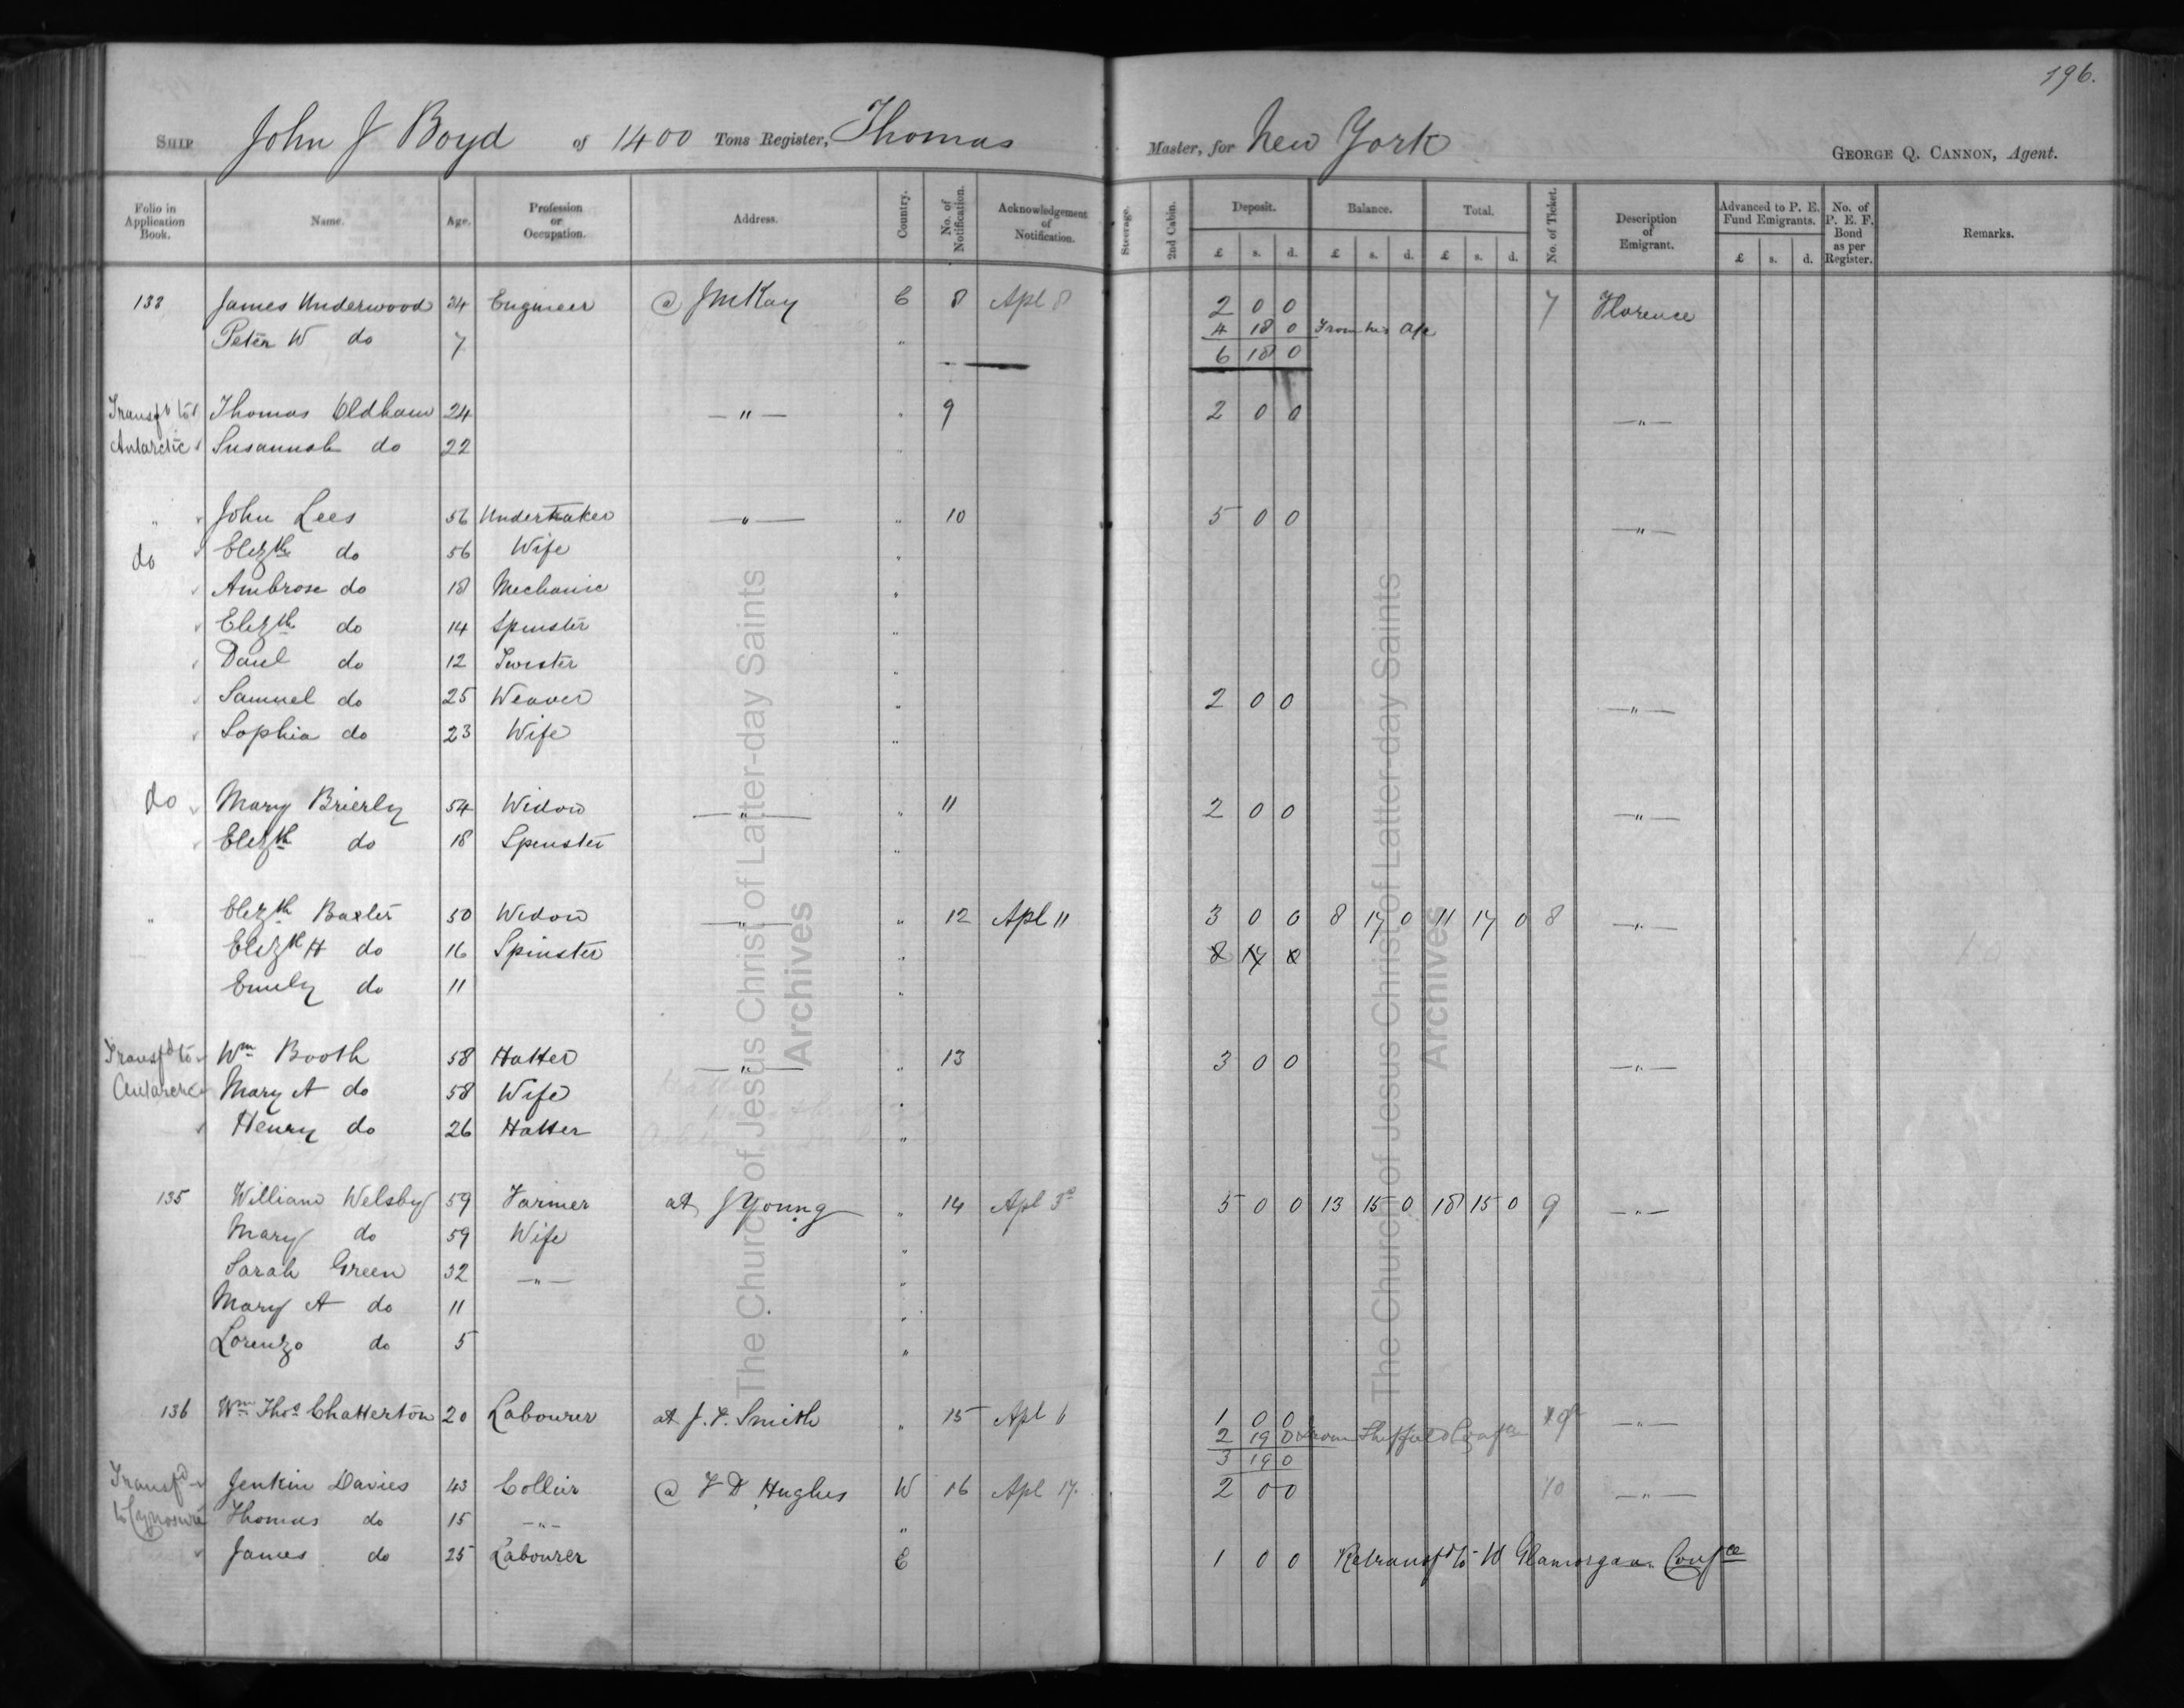 196.
Ship John J Boyd of 1400 Tons Register, Thomas Master, for New York George Q. Cannon, Agent.
Folio in Application Book. Name. Age. Profession or Occupation. Address. Country. No. of Notification. Acknowledgement of Notification. Steerage. 2nd Cabin. Deposit. Balance. Total. No. of Ticket. Description of Emigrant. Advanced to P. E. Fund Emigrants. No. of P. E. F. Bond as per Register. Remarks.
£ s. d. £ s. d. £ s. d. £ s. d.
133 James Underwood 24 Engineer @ J McKay E 8 Apl 8 2 0 0 7 Florence
Peter W do 7 " 4 18 0 From his a/c
6 18 0
Transfd to Thomas Oldham 24 — " — " 9 2 0 0 — " —
Antarctic Susannah do 22 "
" John Lees 56 Undertaker — " — " 10 5 0 0 — " —
do Elizth do 56 Wife "
Ambrose do 18 Mechanic "
Elizth do 14 Spinster "
Danl do 12 Twister "
Samuel do 25 Weaver " 2 0 0 — " —
Sophia do 23 Wife "
do Mary Brierly 54 Widow — " — " 11 2 0 0 — " —
Elizth do 18 Spinster "
" Elizth Baxter 50 Widow — " — " 12 Apl 11 3 0 0 8 17 0 11 17 0 8 — " —
Elizth H do 16 Spinster " 8 17 0
Emily do 11 "
Transfd to Wm Booth 58 Hatter — " — " 13 3 0 0 — " —
Antarctic Mary A do 58 Wife "
Henry do 26 Hatter "
135 William Welsby 59 Farmer at J Young " 14 Apl 3d 5 0 0 13 15 0 18 15 0 9 — " —
Mary do 59 Wife "
Sarah Green 32 — " — "
Mary A do 11 "
Lorenzo do 5 "
136 Wm Thos Chatterton 20 Labourer at J. F. Smith " 15 Apl 6 1 0 0 — " —
2 19 0 from Sheffield Confce
3 19 0
Transfd Jenkin Davies 43 Collier @ F D Hughes W 16 Apl 17. 2 0 0 10 — " —
to Cynosure Thomas do 15 — " — "
James do 25 Labourer E 1 0 0 Retransfd to W Glamorgan Confce
The Church of Jesus Christ of Latter-day Saints
Archives
The Church of Jesus Christ of Latter-day Saints
Archives